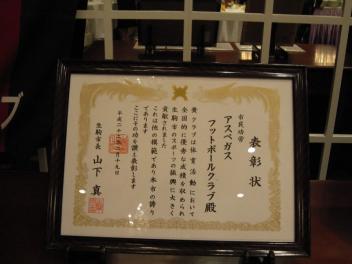 表彰状
市民功労
アスペガス
フットボールクラブ殿
貴クラブは体育活動において
全国的に優秀な成績を収められ
生駒市のスポーツの振興に大きく
貢献されました
これは他の模範であり本市の誇り
であります
ここにその功を讃え表彰します
平成二十三年二月十九日
生駒市長 山下 真